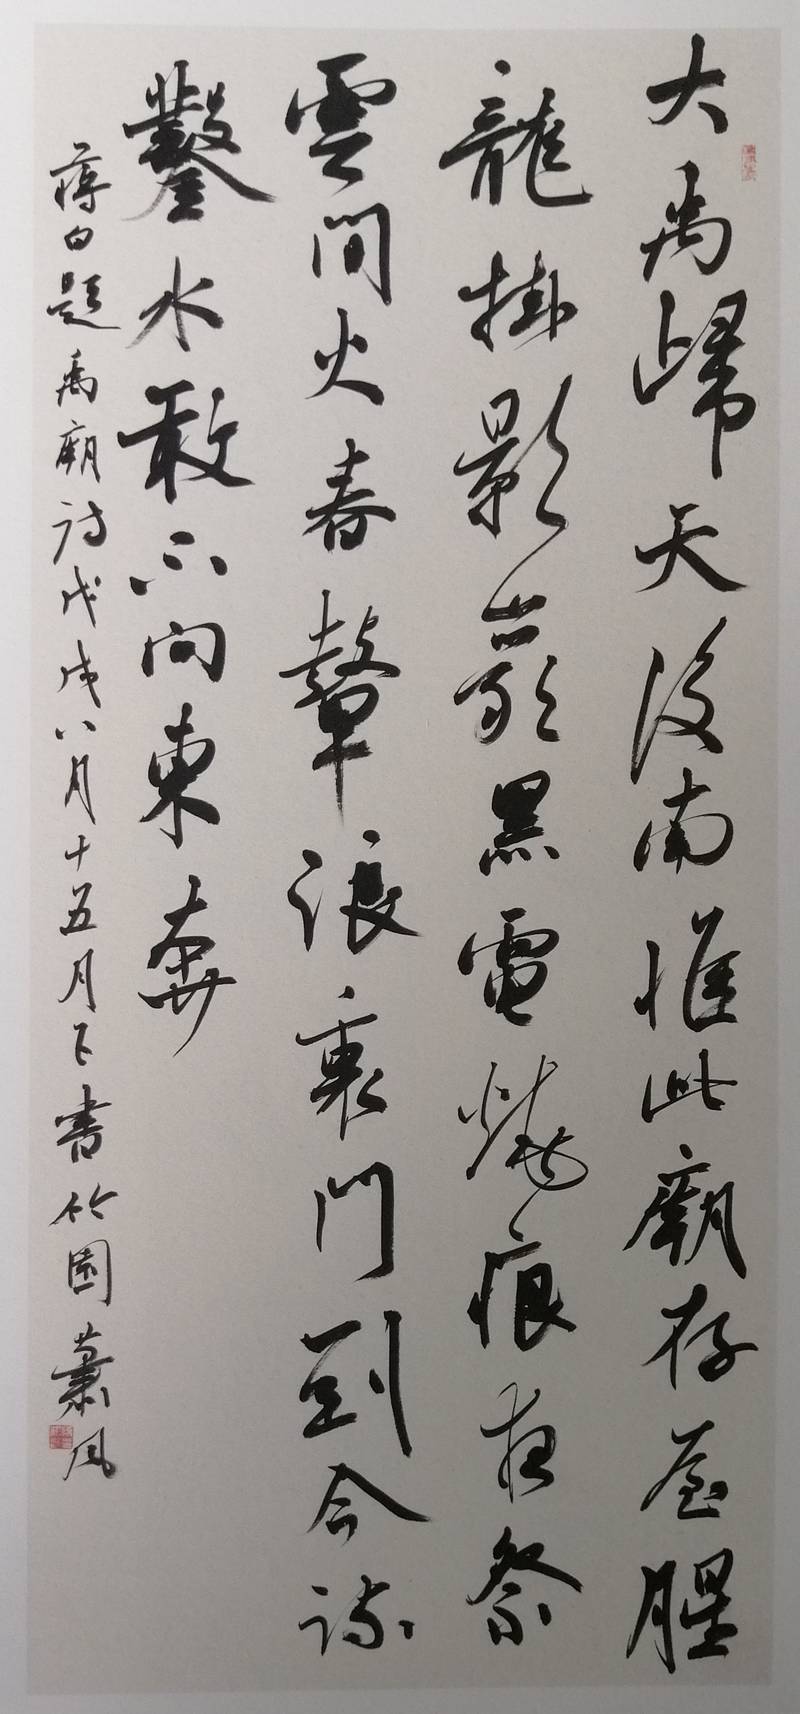 大禹歸天後南惟此廟存屋腥
龍掛影黑電燒痕夜祭
雲間火春聲浪裏門到今疏
鑿水敢不向東奔
蔣白題禹廟詩戊戌八月十五月下書竹園蕭風